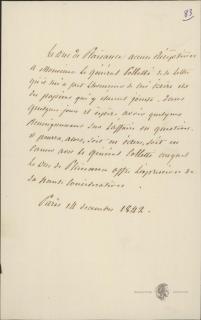 83
Le Duc de Plaisance accuse réception
à Monsieur le Général Colletti de la lettre
qu'il m'a fait l'honneur de m'écrire et
des papiers qui y étaient joints. Dans
quelques jours il espère avoir quelques
renseignements sur l'affaire en question,
et pourra, alors, soit en écrire, soit en
causer avec le Général Colletti auquel
le Duc de Plaisance offre l'expression de
sa haute considération.
Paris 14 décembre 1842.